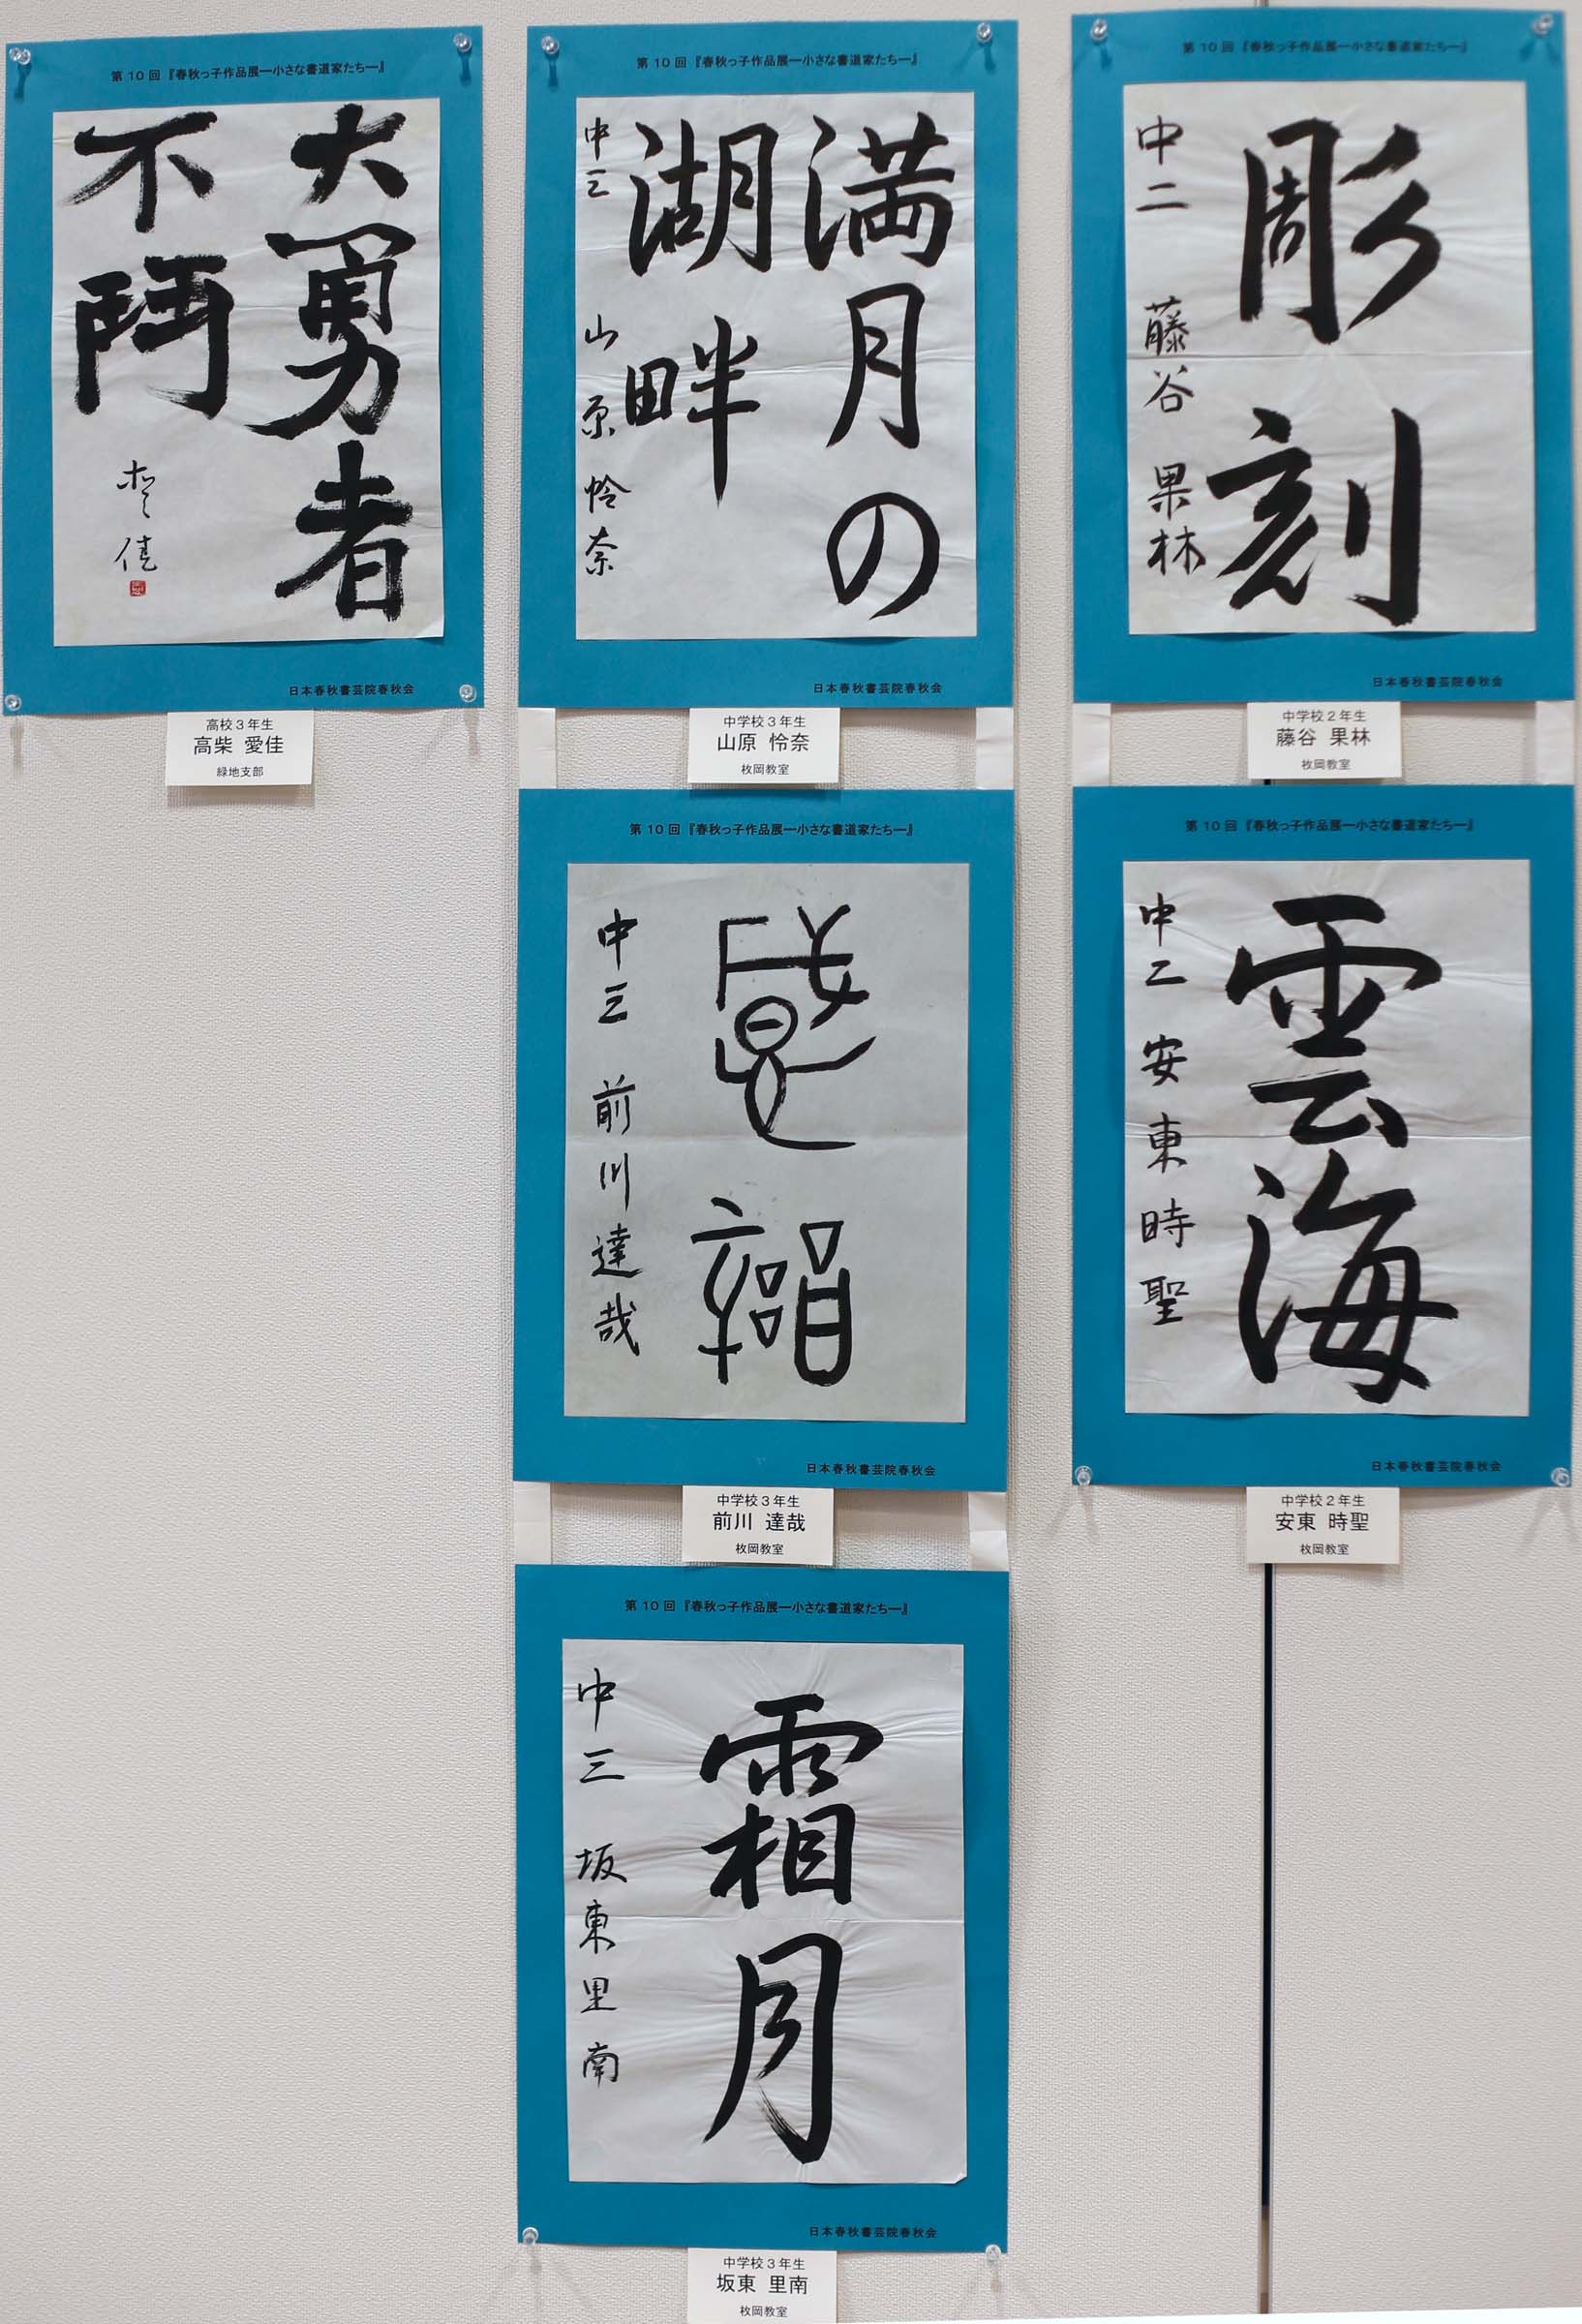 第10回『春秋っ子作品展―小さな書道家たち―』
大勇者
不鬥
佳
日本春秋書芸院春秋会
高校3年生
高柴 愛佳
緑地支部
第10回『春秋っ子作品展―小さな書道家たち―』
満月の
湖畔
中三 山原怜奈
日本春秋書芸院春秋会
中学校3年生
山原 怜奈
枚岡教室
第10回『春秋っ子作品展―小さな書道家たち―』
彫刻
中二 藤谷果林
日本春秋書芸院春秋会
中学校2年生
藤谷 果林
枚岡教室
第10回『春秋っ子作品展―小さな書道家たち―』
感
中三 前川達哉
日本春秋書芸院春秋会
中学校3年生
前川 達哉
枚岡教室
第10回『春秋っ子作品展―小さな書道家たち―』
雲海
中二 安東時聖
日本春秋書芸院春秋会
中学校2年生
安東 時聖
枚岡教室
第10回『春秋っ子作品展―小さな書道家たち―』
霜月
中三 坂東里南
日本春秋書芸院春秋会
中学校3年生
坂東 里南
枚岡教室